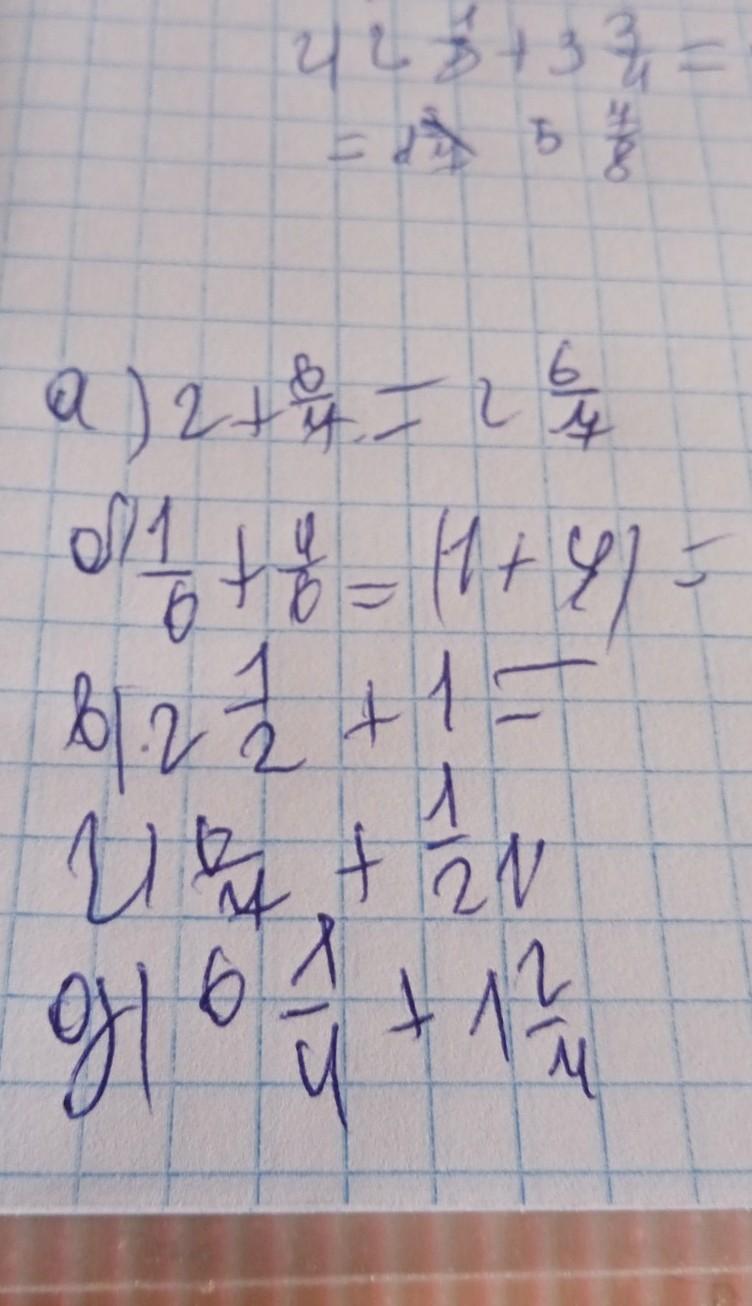 2) 2 1/8 + 3 3/4 =
= 5 7/8
а) 2 + 6/7 = 2 6/7
б) 1/6 + 4/6 = (1 + 4) =
в) 2 1/2 + 1 =
г) 6/7 + 1/2
д) 6 1/4 + 1 2/4